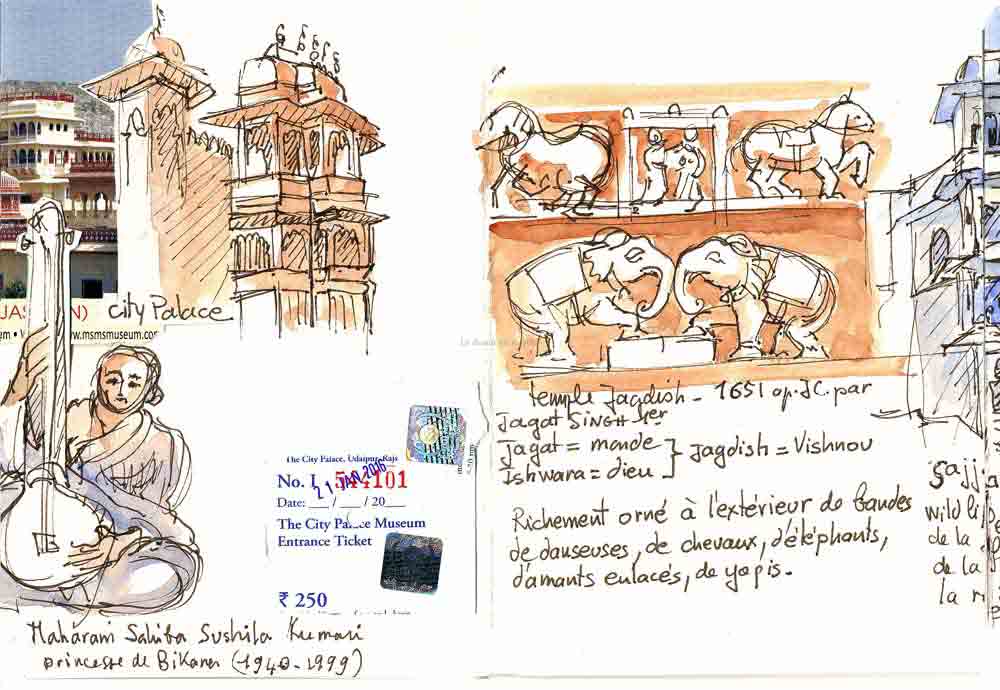 JAS N)
City Palace
m • www.msmsmuseum.com
The City Palace, Udaipur, Raj.
No. I 544101
21 JAN 2016
Date: __/__/20__
The City Palace Museum
Entrance Ticket
₹ 250
Maharani Sahiba Sushila Kumari
princesse de Bikaner (1940-1999)
temple Jagdish - 1651 ap. JC. par
Jagat SINGH 1er
Jagat = monde
Ishwara = dieu } Jagdish = Vishnou
Richement orné à l'extérieur de bandes
de danseuses, de chevaux, d'éléphants,
d'amants enlacés, de yogis.
Sajj
wild li
de la
de la
la r